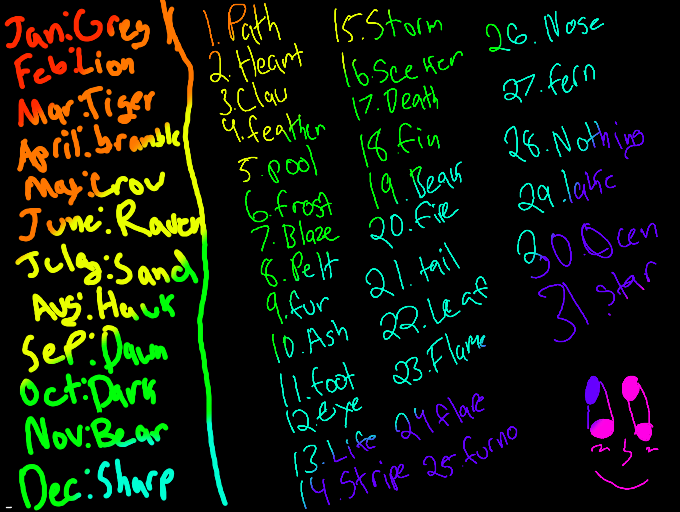 Jan:Greg
Feb:Lion
Mar:Tiger
April:bramble
May:crow
June:Raven
July:Sand
Aug:Hawk
Sep:Dawn
Oct:Dark
Nov:Bear
Dec:Sharp
1.Path
2.Heart
3.Claw
4.feather
5.pool
6.frost
7.Blaze
8.Pelt
9.fur
10.Ash
11.foot
12.eye
13.Life
14.Stripe
15.Storm
16.Seeker
17.Death
18.fin
19.Beak
20.Fire
21.tail
22.Leaf
23.Flame
24 flare
25.furno
26. Nose
27.fern
28.Nothing
29.lake
30.Ocen
31.star